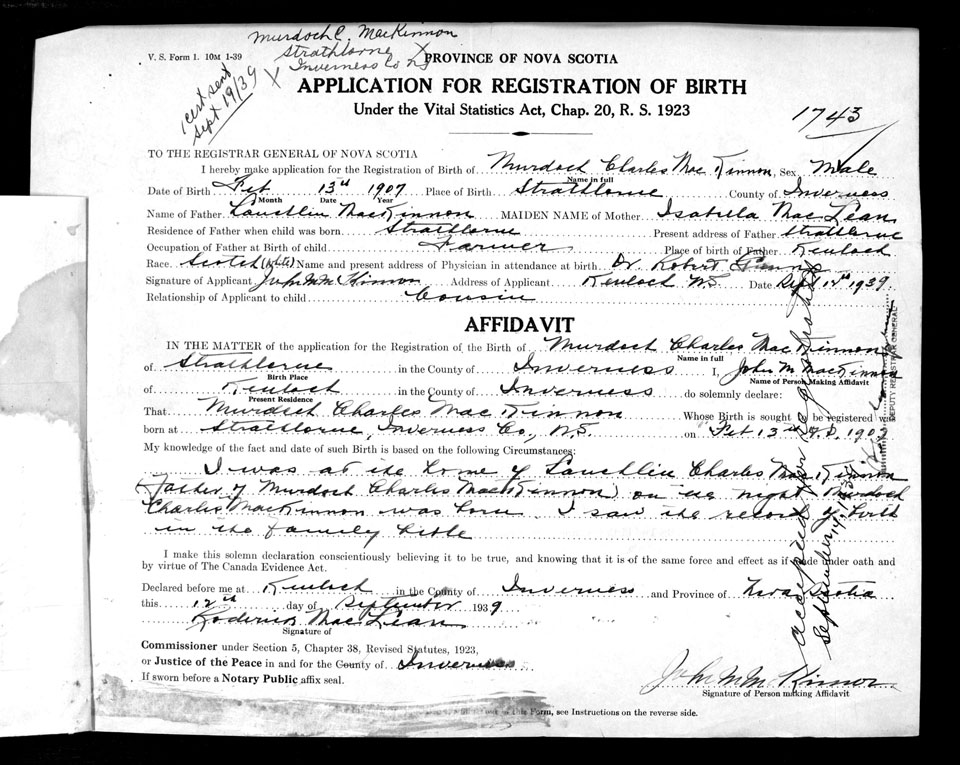 Murdoch C. MacKinnon
Strathlorne
Inverness Co NS
V. S. Form 1. 10M 1-39
PROVINCE OF NOVA SCOTIA
1 cert sent
Sept 19/39
APPLICATION FOR REGISTRATION OF BIRTH
Under the Vital Statistics Act, Chap. 20, R. S. 1923
1743
TO THE REGISTRAR GENERAL OF NOVA SCOTIA
I hereby make application for the Registration of Birth of Murdoch Charles MacKinnon, Sex Male
Name in full
Date of Birth Feb 13th 1907 Place of Birth Strathlorne County of Inverness
Month Date Year
Name of Father Lauchlin MacKinnon MAIDEN NAME of Mother Isabella MacLean
Residence of Father when child was born Strathlorne Present address of Father Strathlorne
Occupation of Father at Birth of child Farmer Place of birth of Father Kenloch
Race Scotch (White) Name and present address of Physician in attendance at birth Dr. Robert
Signature of Applicant John M McKinnon Address of Applicant Kenloch N.S. Date Sept 12th 1939
Relationship of Applicant to child Cousin
AFFIDAVIT
IN THE MATTER of the application for the Registration of the Birth of Murdoch Charles MacKinnon
Name in full
of Strathlorne in the County of Inverness I, John M MacKinnon
Birth Place Name of Person Making Affidavit
of Kenloch in the County of Inverness do solemnly declare:
Present Residence
That Murdoch Charles MacKinnon Whose Birth is sought to be registered was
born at Strathlorne, Inverness Co., N.S. on Feb 13th A.D. 1907
My knowledge of the fact and date of such Birth is based on the following Circumstances:
I was at the home of Lauchlin Charles MacKinnon
(father of Murdoch Charles MacKinnon) on the night Murdoch
Charles MacKinnon was born. I saw the record of birth
in the family bible
I make this solemn declaration conscientiously believing it to be true, and knowing that it is of the same force and effect as if made under oath and
by virtue of The Canada Evidence Act.
Declared before me at Kenloch in the County of Inverness and Province of Nova Scotia
this 12th day of September 1939
Roderick MacLean
Signature of
Commissioner under Section 5, Chapter 38, Revised Statutes, 1923,
or Justice of the Peace in and for the County of Inverness
If sworn before a Notary Public affix seal.
John M McKinnon
Signature of Person making Affidavit
this Form, see Instructions on the reverse side.
accepted for registration
September 14, 1939
DEPUTY REGISTRAR GENERAL